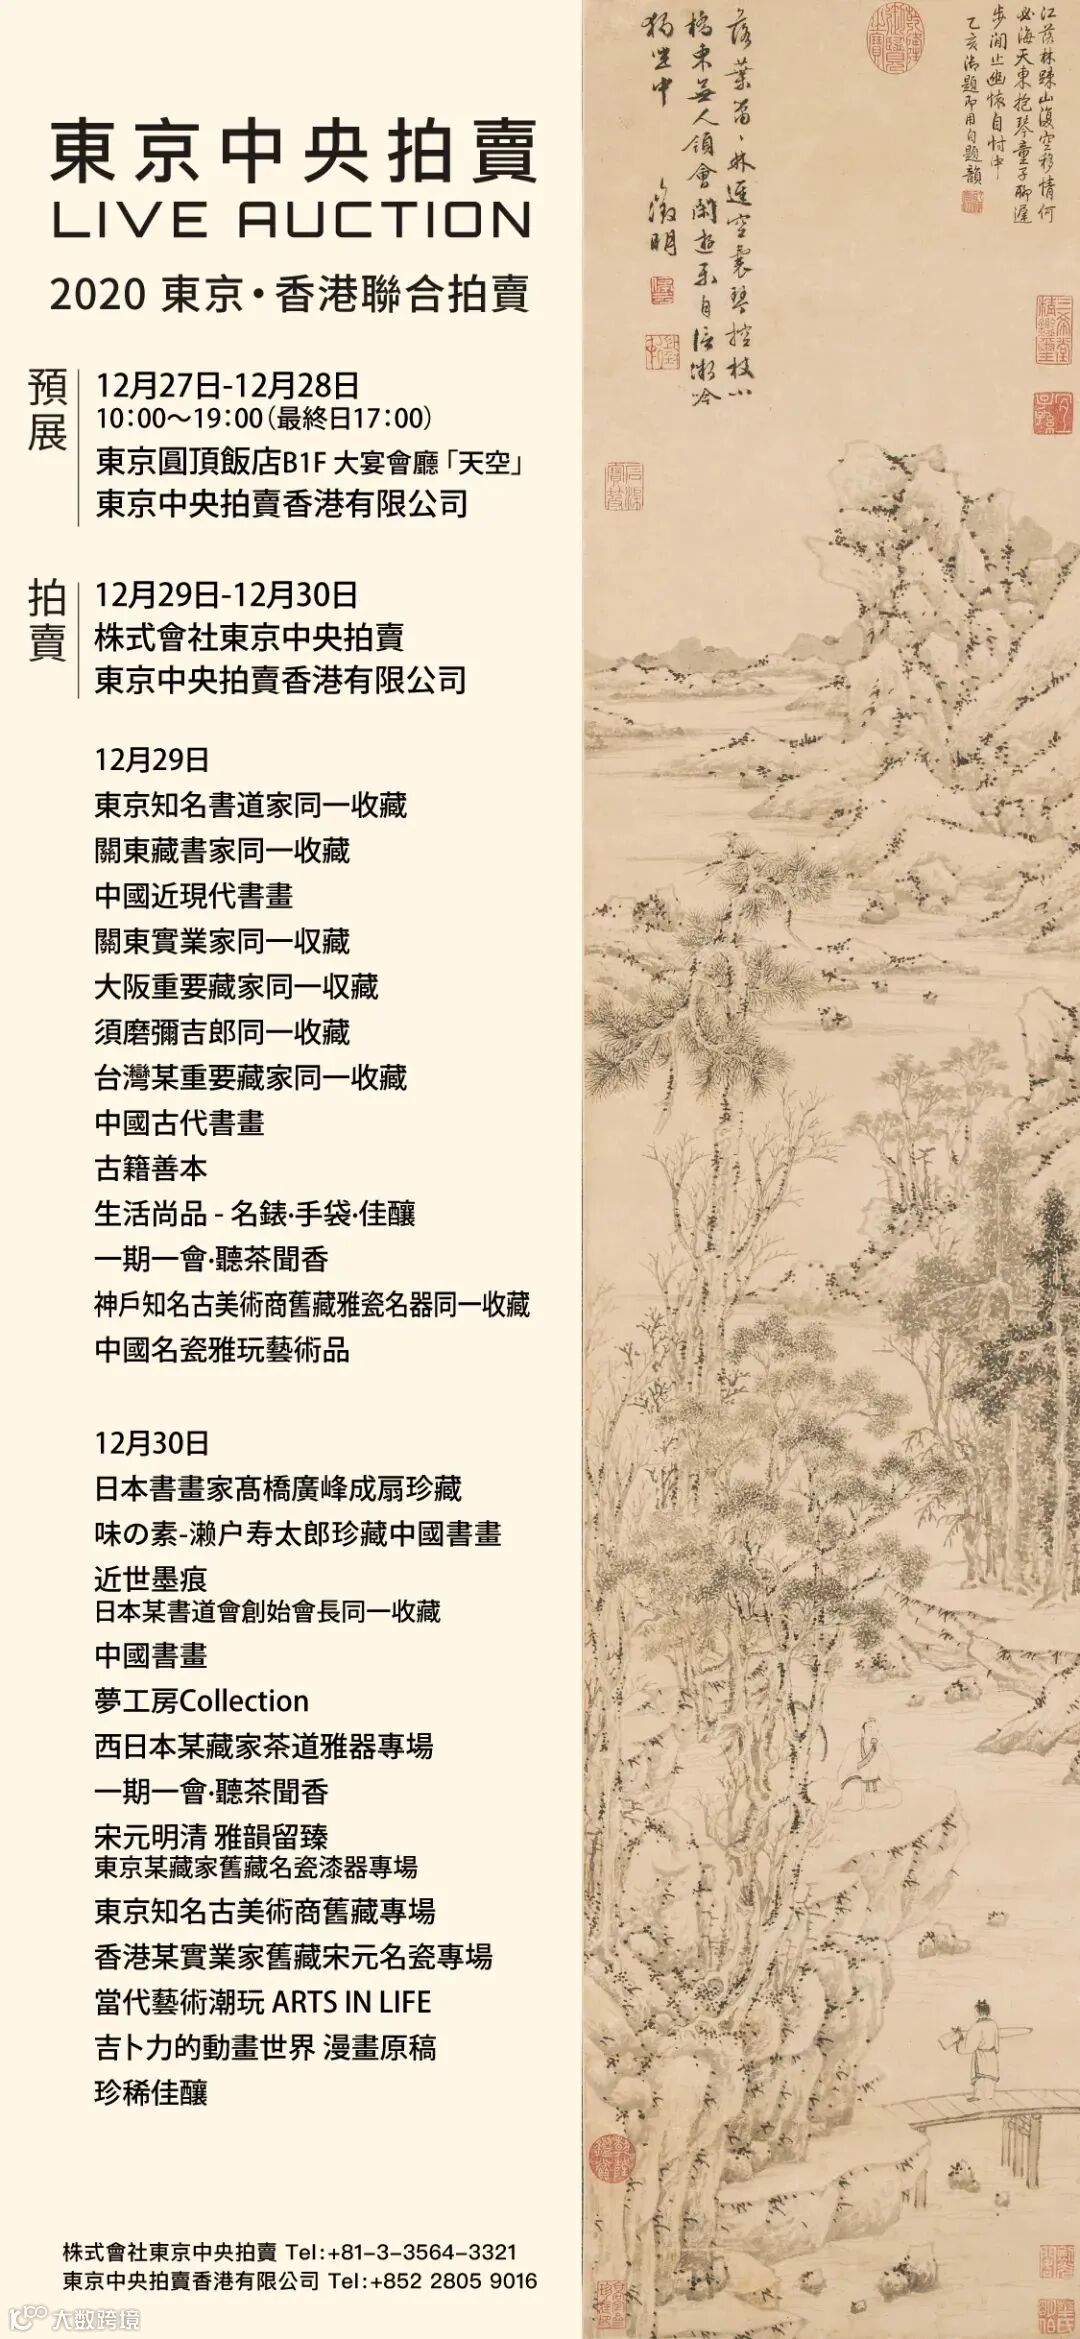 東京中央拍賣
LIVE AUCTION
2020 東京・香港聯合拍賣
預展
12月27日-12月28日
10:00～19:00(最終日17:00)
東京圓頂飯店B1F 大宴會廳「天空」
東京中央拍賣香港有限公司
拍賣
12月29日-12月30日
株式會社東京中央拍賣
東京中央拍賣香港有限公司
12月29日
東京知名書道家同一收藏
關東藏書家同一收藏
中國近現代書畫
關東實業家同一収藏
大阪重要藏家同一収藏
須磨彌吉郎同一收藏
台灣某重要藏家同一收藏
中國古代書畫
古籍善本
生活尚品 - 名錶·手袋·佳釀
一期一會·聽茶聞香
神戶知名古美術商舊藏雅瓷名器同一收藏
中國名瓷雅玩藝術品
12月30日
日本書畫家髙橋廣峰成扇珍藏
味の素-瀨户寿太郎珍藏中國書畫
近世墨痕
日本某書道會創始會長同一收藏
中國書畫
夢工房Collection
西日本某藏家茶道雅器專場
一期一會·聽茶聞香
宋元明清 雅韻留臻
東京某藏家舊藏名瓷漆器專場
東京知名古美術商舊藏專場
香港某實業家舊藏宋元名瓷專場
當代藝術潮玩 ARTS IN LIFE
吉卜力的動畫世界 漫畫原稿
珍稀佳釀
株式會社東京中央拍賣 Tel:+81-3-3564-3321
東京中央拍賣香港有限公司 Tel:+852 2805 9016
大数跨境
江落林踈山復空移情何
必海天東抱琴童子聊遲
步閒止幽懷自忖中
乙亥御題即用自題韻
橋東無人領會閑遊樂自
獨坐中
徵明